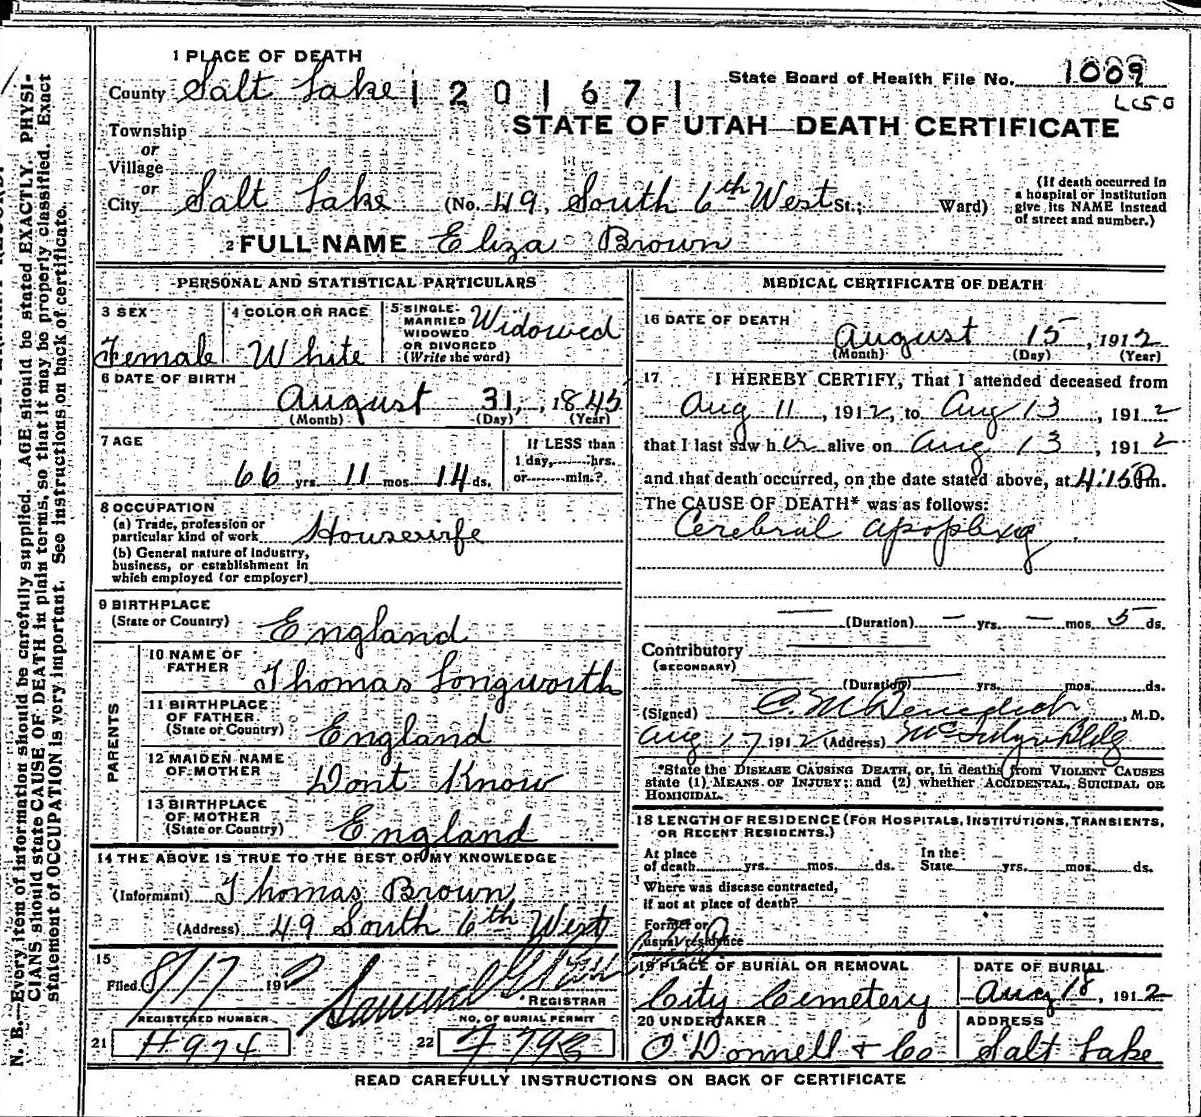 1 PLACE OF DEATH
County Salt Lake 1201671 State Board of Health File No. 1009
STATE OF UTAH—DEATH CERTIFICATE
Township
or
Village
or
City Salt Lake (No. 49, South 6th West St.; Ward)
(If death occurred in
a hospital or institution
give its NAME instead
of street and number.)
2 FULL NAME Eliza Brown
PERSONAL AND STATISTICAL PARTICULARS
3 SEX Female
4 COLOR OR RACE White
5 SINGLE
MARRIED
WIDOWED
OR DIVORCED
(Write the word) Widowed
6 DATE OF BIRTH
August 31, 1845
(Month) (Day) (Year)
7 AGE
66 yrs. 11 mos. 14 ds.
If LESS than
1 day, hrs.
or min.?
8 OCCUPATION
(a) Trade, profession or
particular kind of work Housewife
(b) General nature of Industry,
business, or establishment in
which employed (or employer)
9 BIRTHPLACE
(State or Country) England
PARENTS
10 NAME OF
FATHER Thomas Longworth
11 BIRTHPLACE
OF FATHER
(State or Country) England
12 MAIDEN NAME
OF MOTHER Dont Know
13 BIRTHPLACE
OF MOTHER
(State or Country) England
14 THE ABOVE IS TRUE TO THE BEST OF MY KNOWLEDGE
(Informant) Thomas Brown
(Address) 49 South 6th West
15
Filed 8/17 191
REGISTRAR
REGISTERED NUMBER
21 H974
NO. OF BURIAL PERMIT
22
MEDICAL CERTIFICATE OF DEATH
16 DATE OF DEATH
August 15, 1912
(Month) (Day) (Year)
17 I HEREBY CERTIFY, That I attended deceased from
Aug 11, 1912, to Aug 13, 1912
that I last saw her alive on Aug 13, 1912
and that death occurred, on the date stated above, at 4:15 Pm.
The CAUSE OF DEATH* was as follows:
Cerebral apoplexy
(Duration) — yrs. — mos. 5 ds.
Contributory
(SECONDARY)
(Duration) yrs. mos. ds.
(Signed) C. M. Benedict, M.D.
Aug 17, 1912 (Address) Bldg
*State the DISEASE CAUSING DEATH, or, in deaths from VIOLENT CAUSES
state (1) MEANS OF INJURY; and (2) whether ACCIDENTAL, SUICIDAL OR
HOMICIDAL.
18 LENGTH OF RESIDENCE (FOR HOSPITALS, INSTITUTIONS, TRANSIENTS,
OR RECENT RESIDENTS.)
At place
of death yrs. mos. ds.
In the
State yrs. mos. ds.
Where was disease contracted,
if not at place of death?
Former or
usual residence
19 PLACE OF BURIAL OR REMOVAL
City Cemetery
DATE OF BURIAL
Aug 18, 1912
20 UNDERTAKER
O'Donnell & Co
ADDRESS
Salt Lake
READ CAREFULLY INSTRUCTIONS ON BACK OF CERTIFICATE
N. B.—Every item of information should be carefully supplied. AGE should be stated EXACTLY. PHYSI-
CIANS should state CAUSE OF DEATH in plain terms, so that it may be properly classified. Exact
statement of OCCUPATION is very important. See instructions on back of certificate.